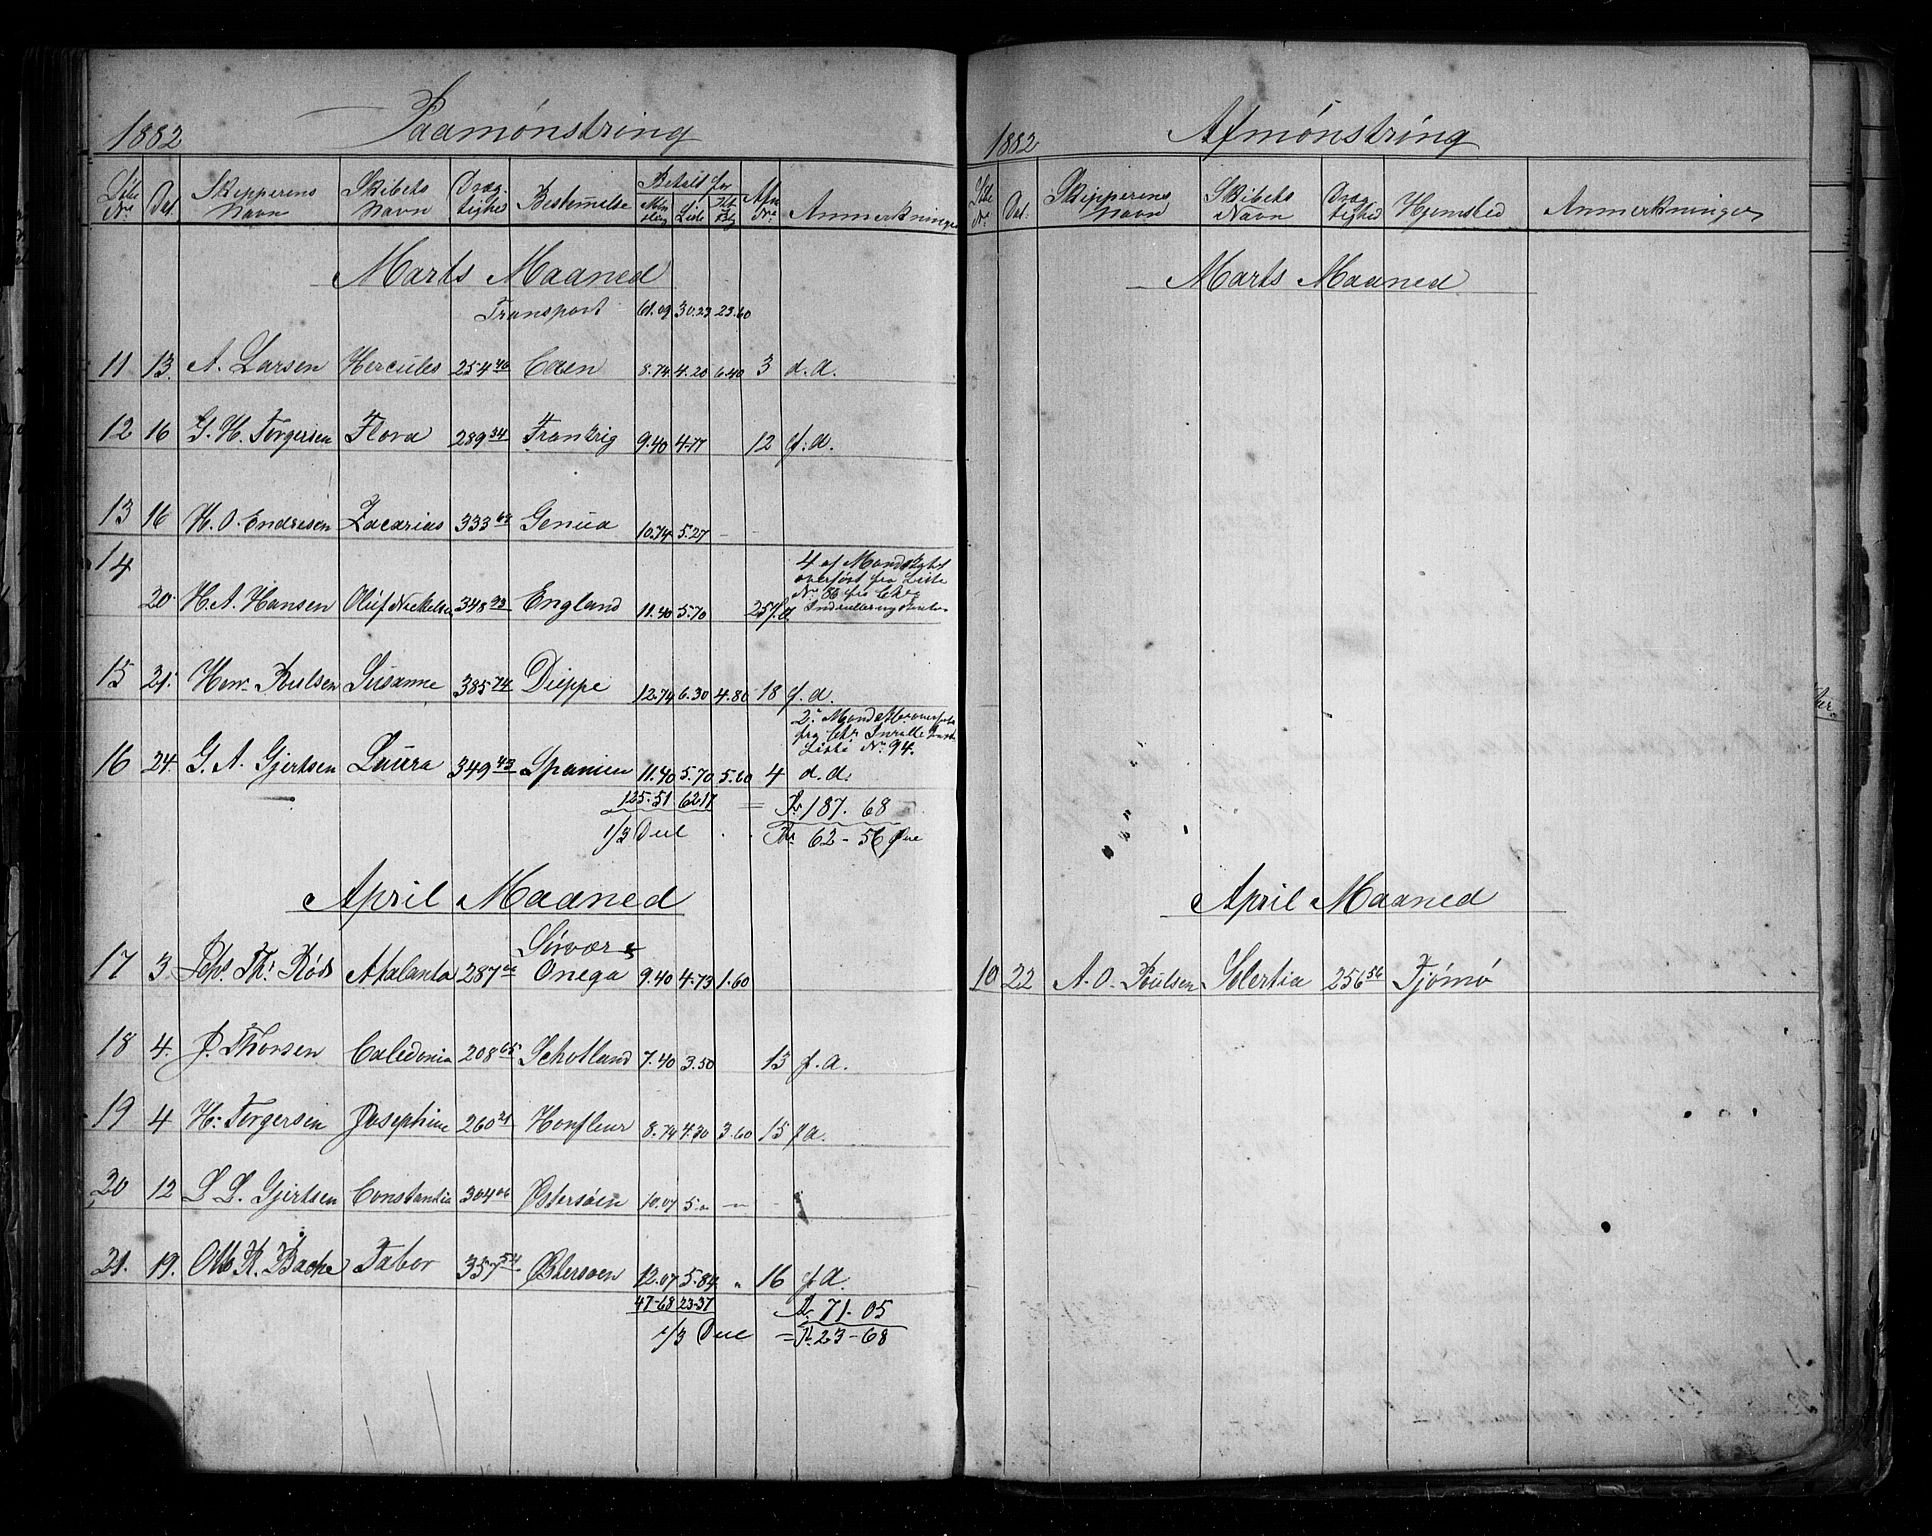 1882 Paamönstring
Liste No Dat. Skipperens Navn Skibets Navn Dræg- tighed Bestemmelse Betalt for Liste Afm No Anmerkninger
Marts Maaned
Transport 61.09 30.23 23.60
11 13. A. Larsen Hercules 254 46 Caen 8.74 4.20 6.40 3 d.A.
12 16 G. H. Torgersen Flora 289 34 Frankrig 9.40 4.77 12 f.d.
13 16 H. O. Endresen Zacarias 333 63 Genua 10.74 5.27 — -
14
4 af Mandskabet
overført fra Liste
No 86 fra Chra
20 H. A. Hansen Oluf Nickelsen 348 93 England 11.40 5.70 257 Indrullering
15 21. Hen. Rulsen Susanne 385 74 Dieppe 12.74 6.30 4.80 18 f.d.
2
fra Chr.
Liste No. 94.
16 24. G. A. Gjertsen Laura 349 43 Spanien 11.40 5.70 5.60 4 d.d.
125.51 62.17 = Kr 187. 68
1/3 Deel . . Kr. 62-56 Øre
April Maaned
Sörvær &
17 3 Th. Röds Atalanta 287 Onega 9.40 4.73 1.60
18 4. J. Thorsen Caledonia 208 65 Schotland 7.40 3.50 13 f.a.
19 4 H. Torgersen Josephine 260 21 Honfleur 8.74 4.30 3.60 15 f a.
20 12 L. L. Gjertsen Constantia 304 06 Østersöen 10.07 5. — -
21. 19. Otto R. Backe Tabor 357 54 Østersoen 12.07 5.84 " 16 f A.
47-68 23-37 Kr. 71. 05
1/3 Deel = Kr. 23-68
1882 Afmönstring
Liste No. Dat. Skipperens Navn Skibets Navn Dræg- tighed Hjemsted Anmerkninger
Marts Maaned
April Maaned
10 22 A. O. Poulsen Solertia 256 56 Tjömö